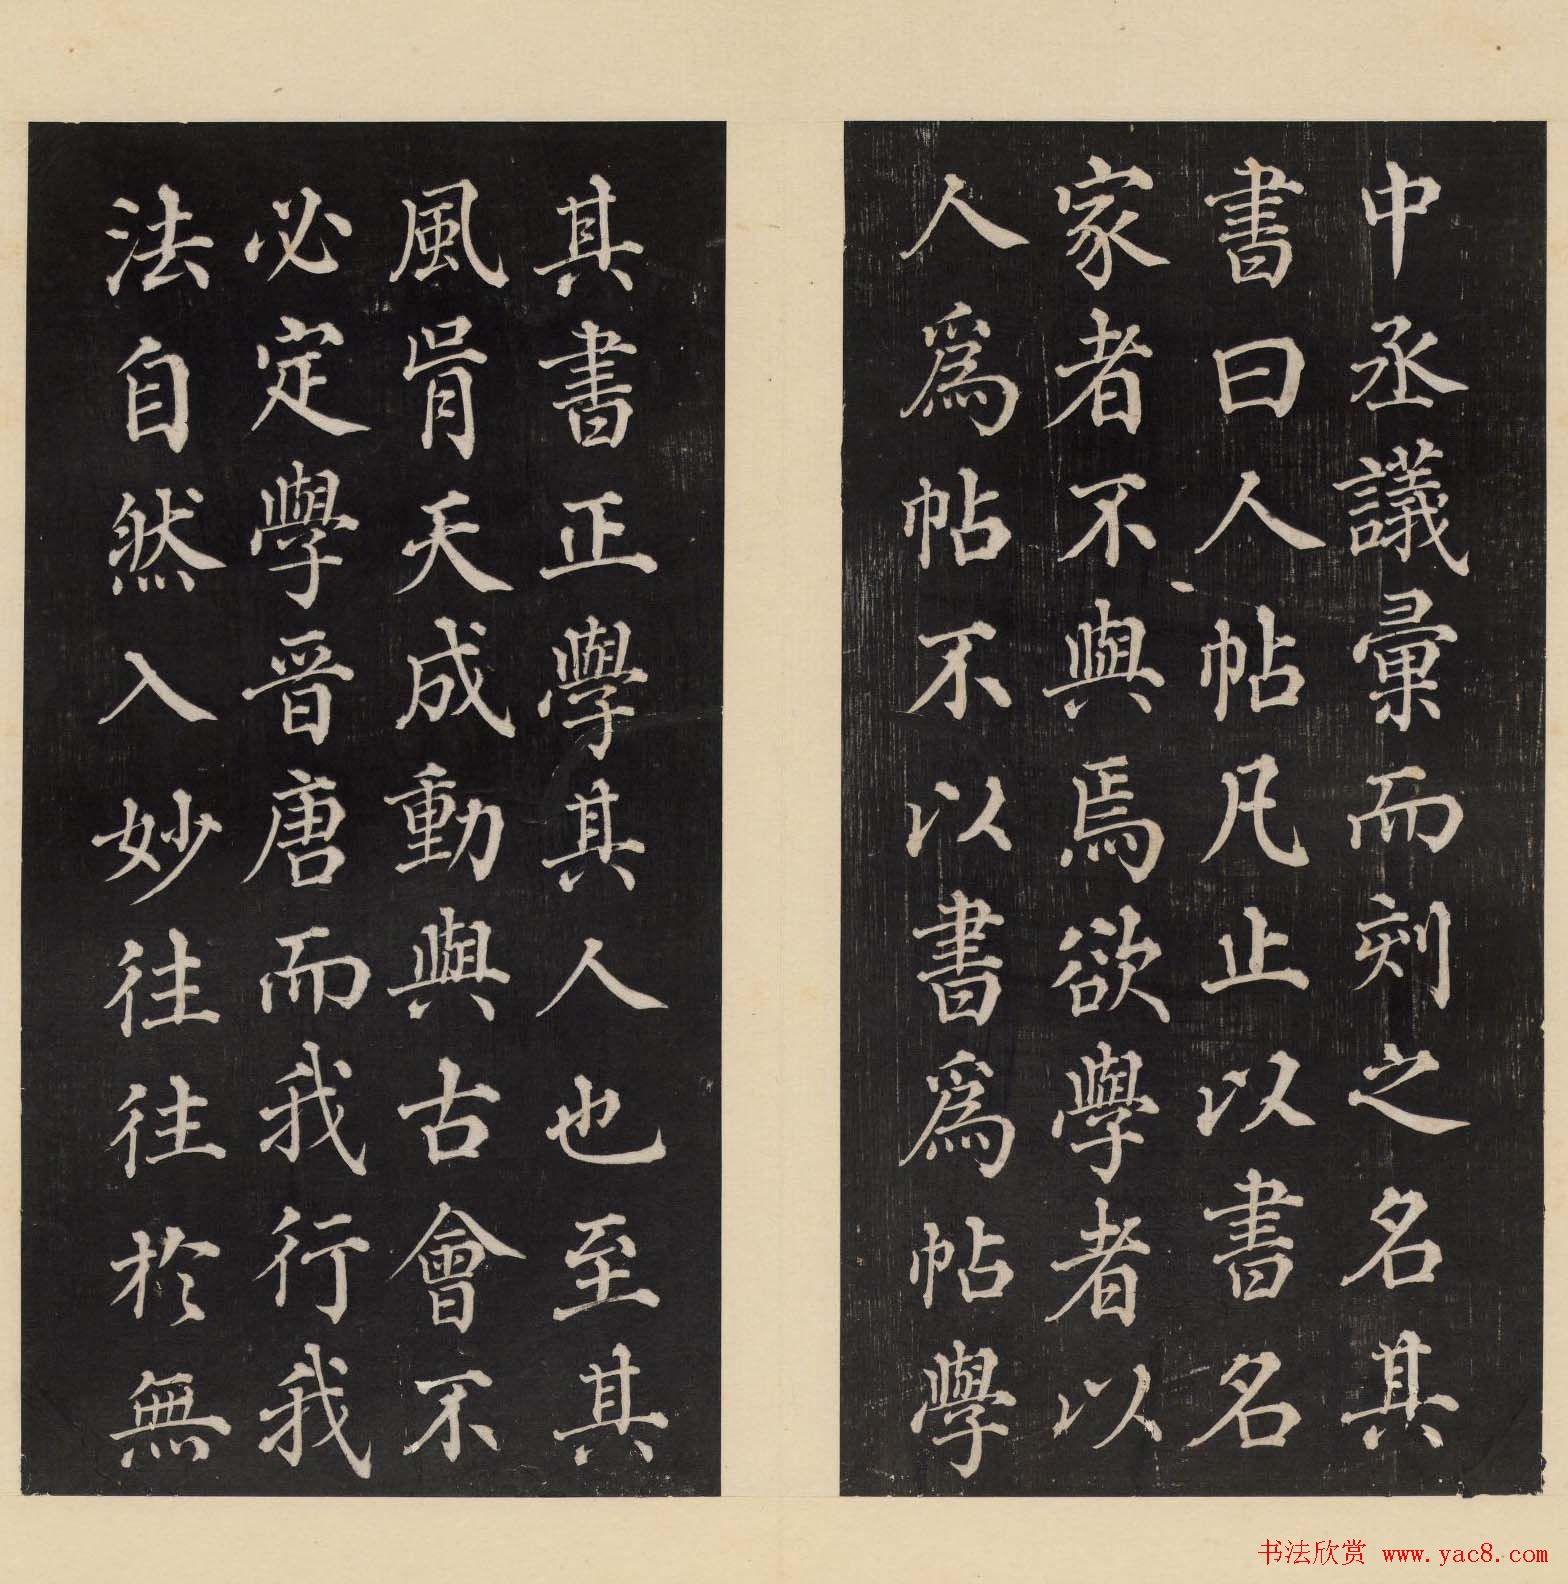 中丞議彙而刻之名其
書曰人帖凡止以書名
家者不與焉欲學者以
人爲帖不以書爲帖學
其書正學其人也至其
風骨天成動與古會不
必定學晉唐而我行我
法自然入妙往往於無
书法欣赏 www.yac8.com